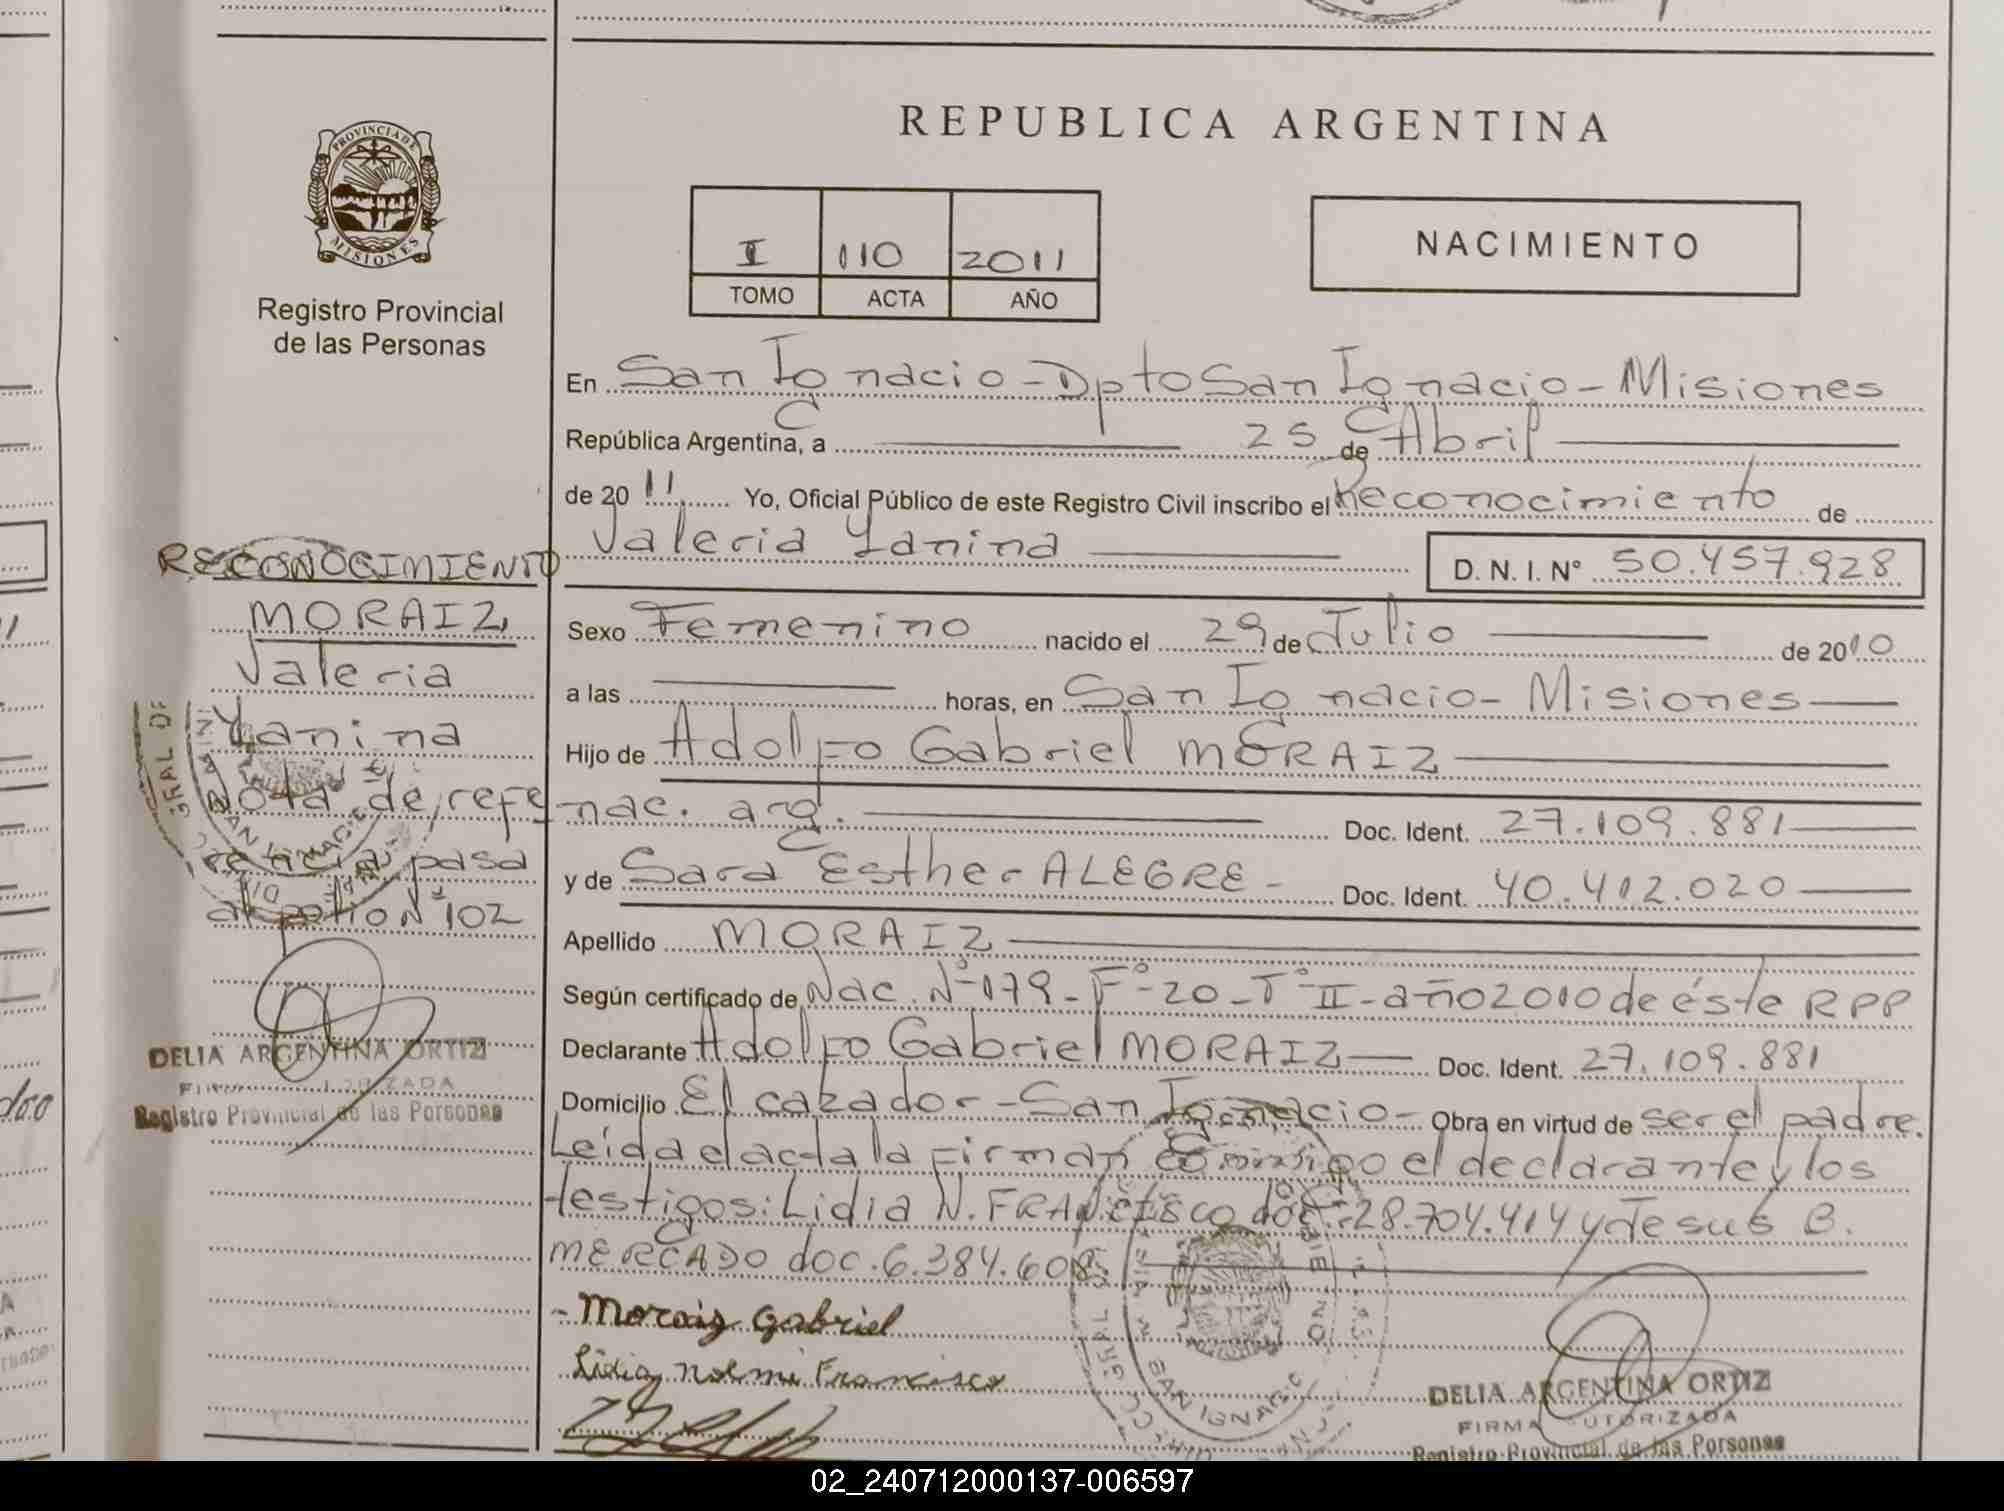 PROVINCIA DE
MISIONES
Registro Provincial
de las Personas
RECONOCIMIENTO
MORAIZ
Valeria
Yanina
Nota de refe
rencia pasa
al folio Nº 102
DELIA ARGENTINA ORTIZ
FIRMA AUTORIZADA
Registro Provincial de las Personas
REPUBLICA ARGENTINA
I 110 2011
TOMO ACTA AÑO
NACIMIENTO
En San Ignacio - Dpto San Ignacio - Misiones
República Argentina, a 25 de Abril
de 2011 Yo, Oficial Público de este Registro Civil inscribo el Reconocimiento de
Valeria Yanina
D. N. I. N° 50.457.928
Sexo Femenino nacido el 29 de Julio de 2010
a las horas, en San Ignacio - Misiones
Hijo de Adolfo Gabriel MORAIZ
nac. arg. Doc. Ident. 27.109.881
y de Sara Esther ALEGRE - Doc. Ident. 40.412.020
Apellido MORAIZ
Según certificado de Nac. Nº 179 - Fº 20 - Tº II - año 2010 de éste RPP
Declarante Adolfo Gabriel MORAIZ Doc. Ident. 27.109.881
Domicilio El cazador - San Ignacio - Obra en virtud de ser el padre.
Leída el acta la firman conmigo el declarante y los
testigos: Lidia N. FRANCISCO doc. 28.704.414 y Jesus B.
MERCADO doc. 6.384.608
- Moraiz Gabriel
Lidia Noemi Francisco
SAN IGNACIO
DELIA ARGENTINA ORTIZ
FIRMA AUTORIZADA
Registro Provincial de las Personas
02_240712000137-006597